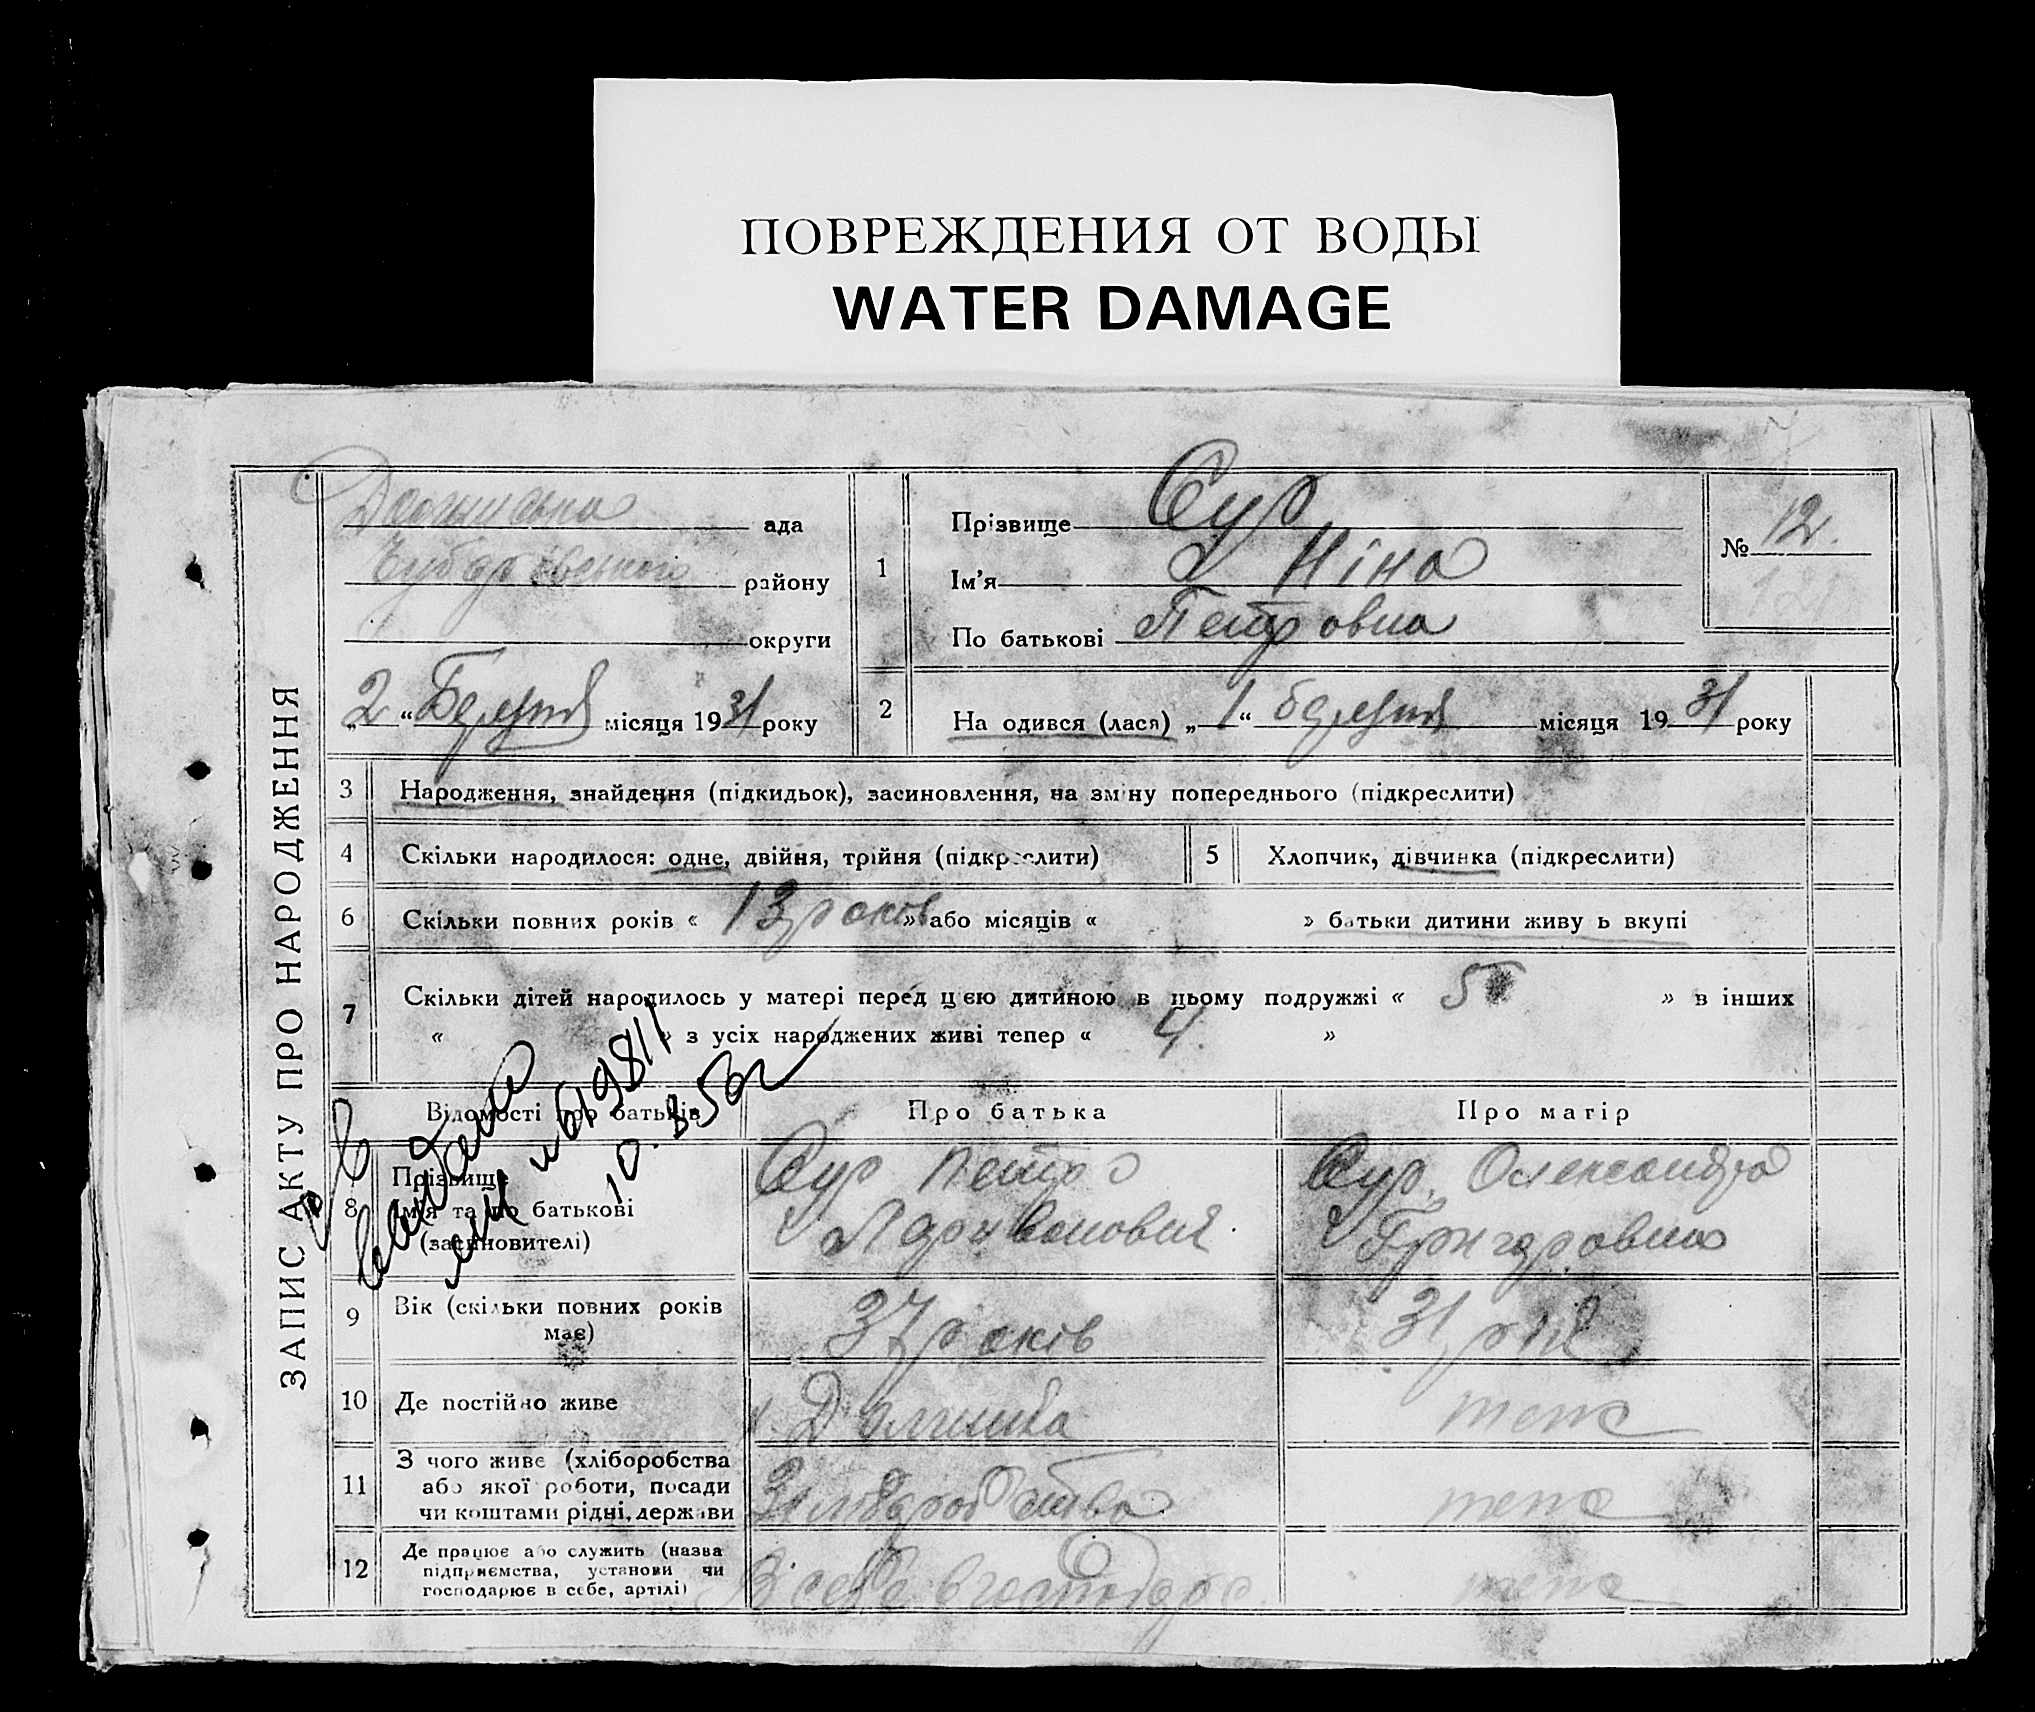 ПОВРЕЖДЕНИЯ ОТ ВОДЫ
WATER DAMAGE
ЗАПИС АКТУ ПРО НАРОДЖЕННЯ
ада
району
округи
„2“ Березня місяця 1931 року
1 Прізвище Сур
Ім'я Ніна
По батькові Петровна
№ 12.
2 На одився (лася) „1“ березня місяця 1931 року
3 Народження, знайдення (підкидьок), засиновлення, на зміну попереднього (підкреслити)
4 Скільки народилося: одне, двійня, трійня (підкреслити)
5 Хлопчик, дівчинка (підкреслити)
6 Скільки повних років « 13 років » або місяців « » батьки дитини живу ь вкупі
7 Скільки дітей народилось у матері перед цією дитиною в цьому подружжі « 5 » в інших
« » з усіх народжених живі тепер « 4 »
Відомості про батьків
Про батька
Про матір
8 Прізвище
Ім'я та по батькові
(засиновителі)
Сур Петро
Сур Олександра
Григоровна
9 Вік (скільки повних років
має)
37 років
31 рік
10 Де постійно живе
теж
11 З чого живе (хліборобства
або якої роботи, посади
чи коштами рідні, держави
Хліборобство
теж
12 Де працює або служить (назва
підприємства, установи чи
господарює в себе, артілі)
В себе в господарс.
теж